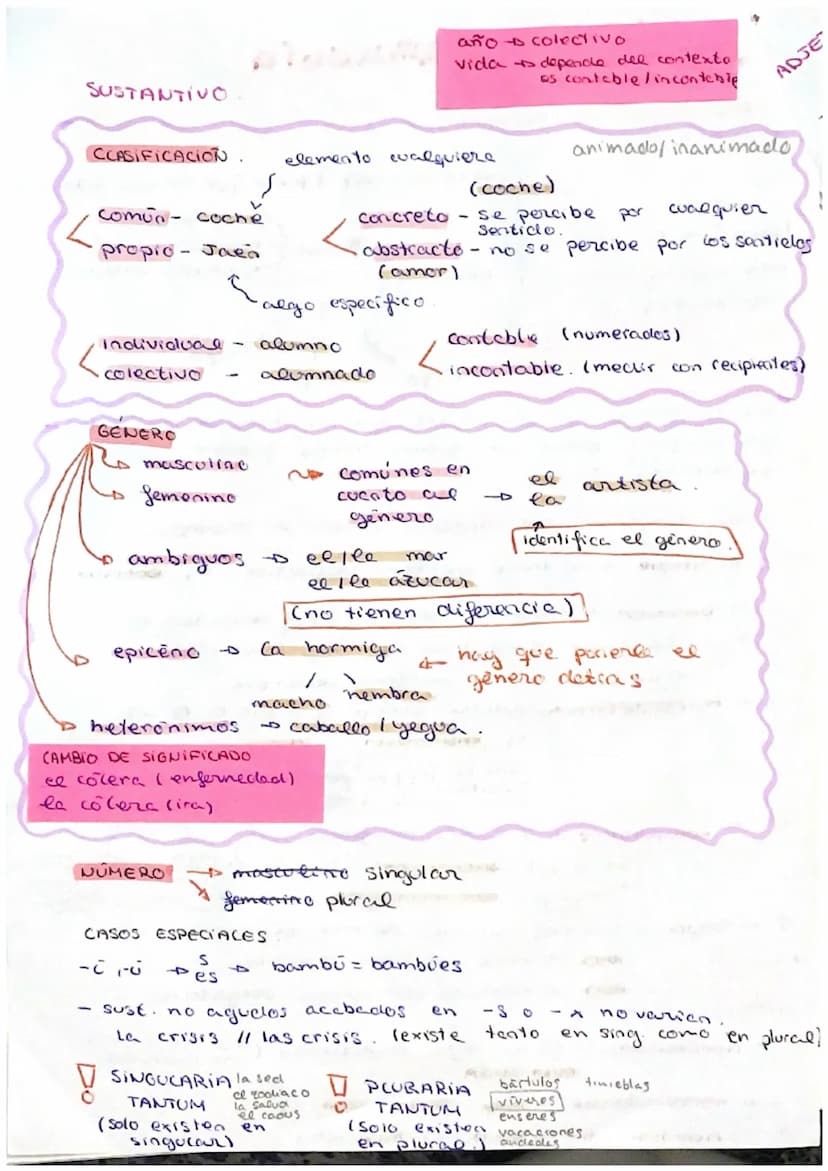 año → colectivo
vida → depende del contexto
es contable/incontable
ADJE
SUSTANTIVO
CLASIFICACIÓN.
elemento cualquiera
animado/inanimado
(coche)
común - coche
concreto - se percibe por cualquier
sentido.
propio - Jaén
abstracto - no se percibe por los sentidos
(amor)
algo específico.
individual - alumno
contable (numerados)
colectivo - alumnado
incontable. (medir con recipientes)
GÉNERO
masculino
femenino
comúnes en
cuanto al
género
→ el
la
artista.
identifica el género.
ambiguos → el/la mar
el/la ázucar
(no tienen diferencia)
epicéno → la hormiga
← hay que ponerle el
género detrás
macho hembra
heterónimos → caballo/yegua.
CAMBIO DE SIGNIFICADO
el cólera (enfermedad)
la cólera (ira)
NÚMERO → masculino singular
femenino plural
CASOS ESPECIALES
-í, -ú → s
es → bambú = bambúes
- sust. no agudos acabados en -s o -x no varían.
La crisis // las crisis. (existe tanto en sing. como en plural)
! SINGULARIA
TANTUM
(solo existen en
singular)
la sed
el zodiaco
la salud
el caos
! PLURARIA
TANTUM
(Solo existen
en plural.)
bártulos tinieblas
víveres
enseres
vacaciones